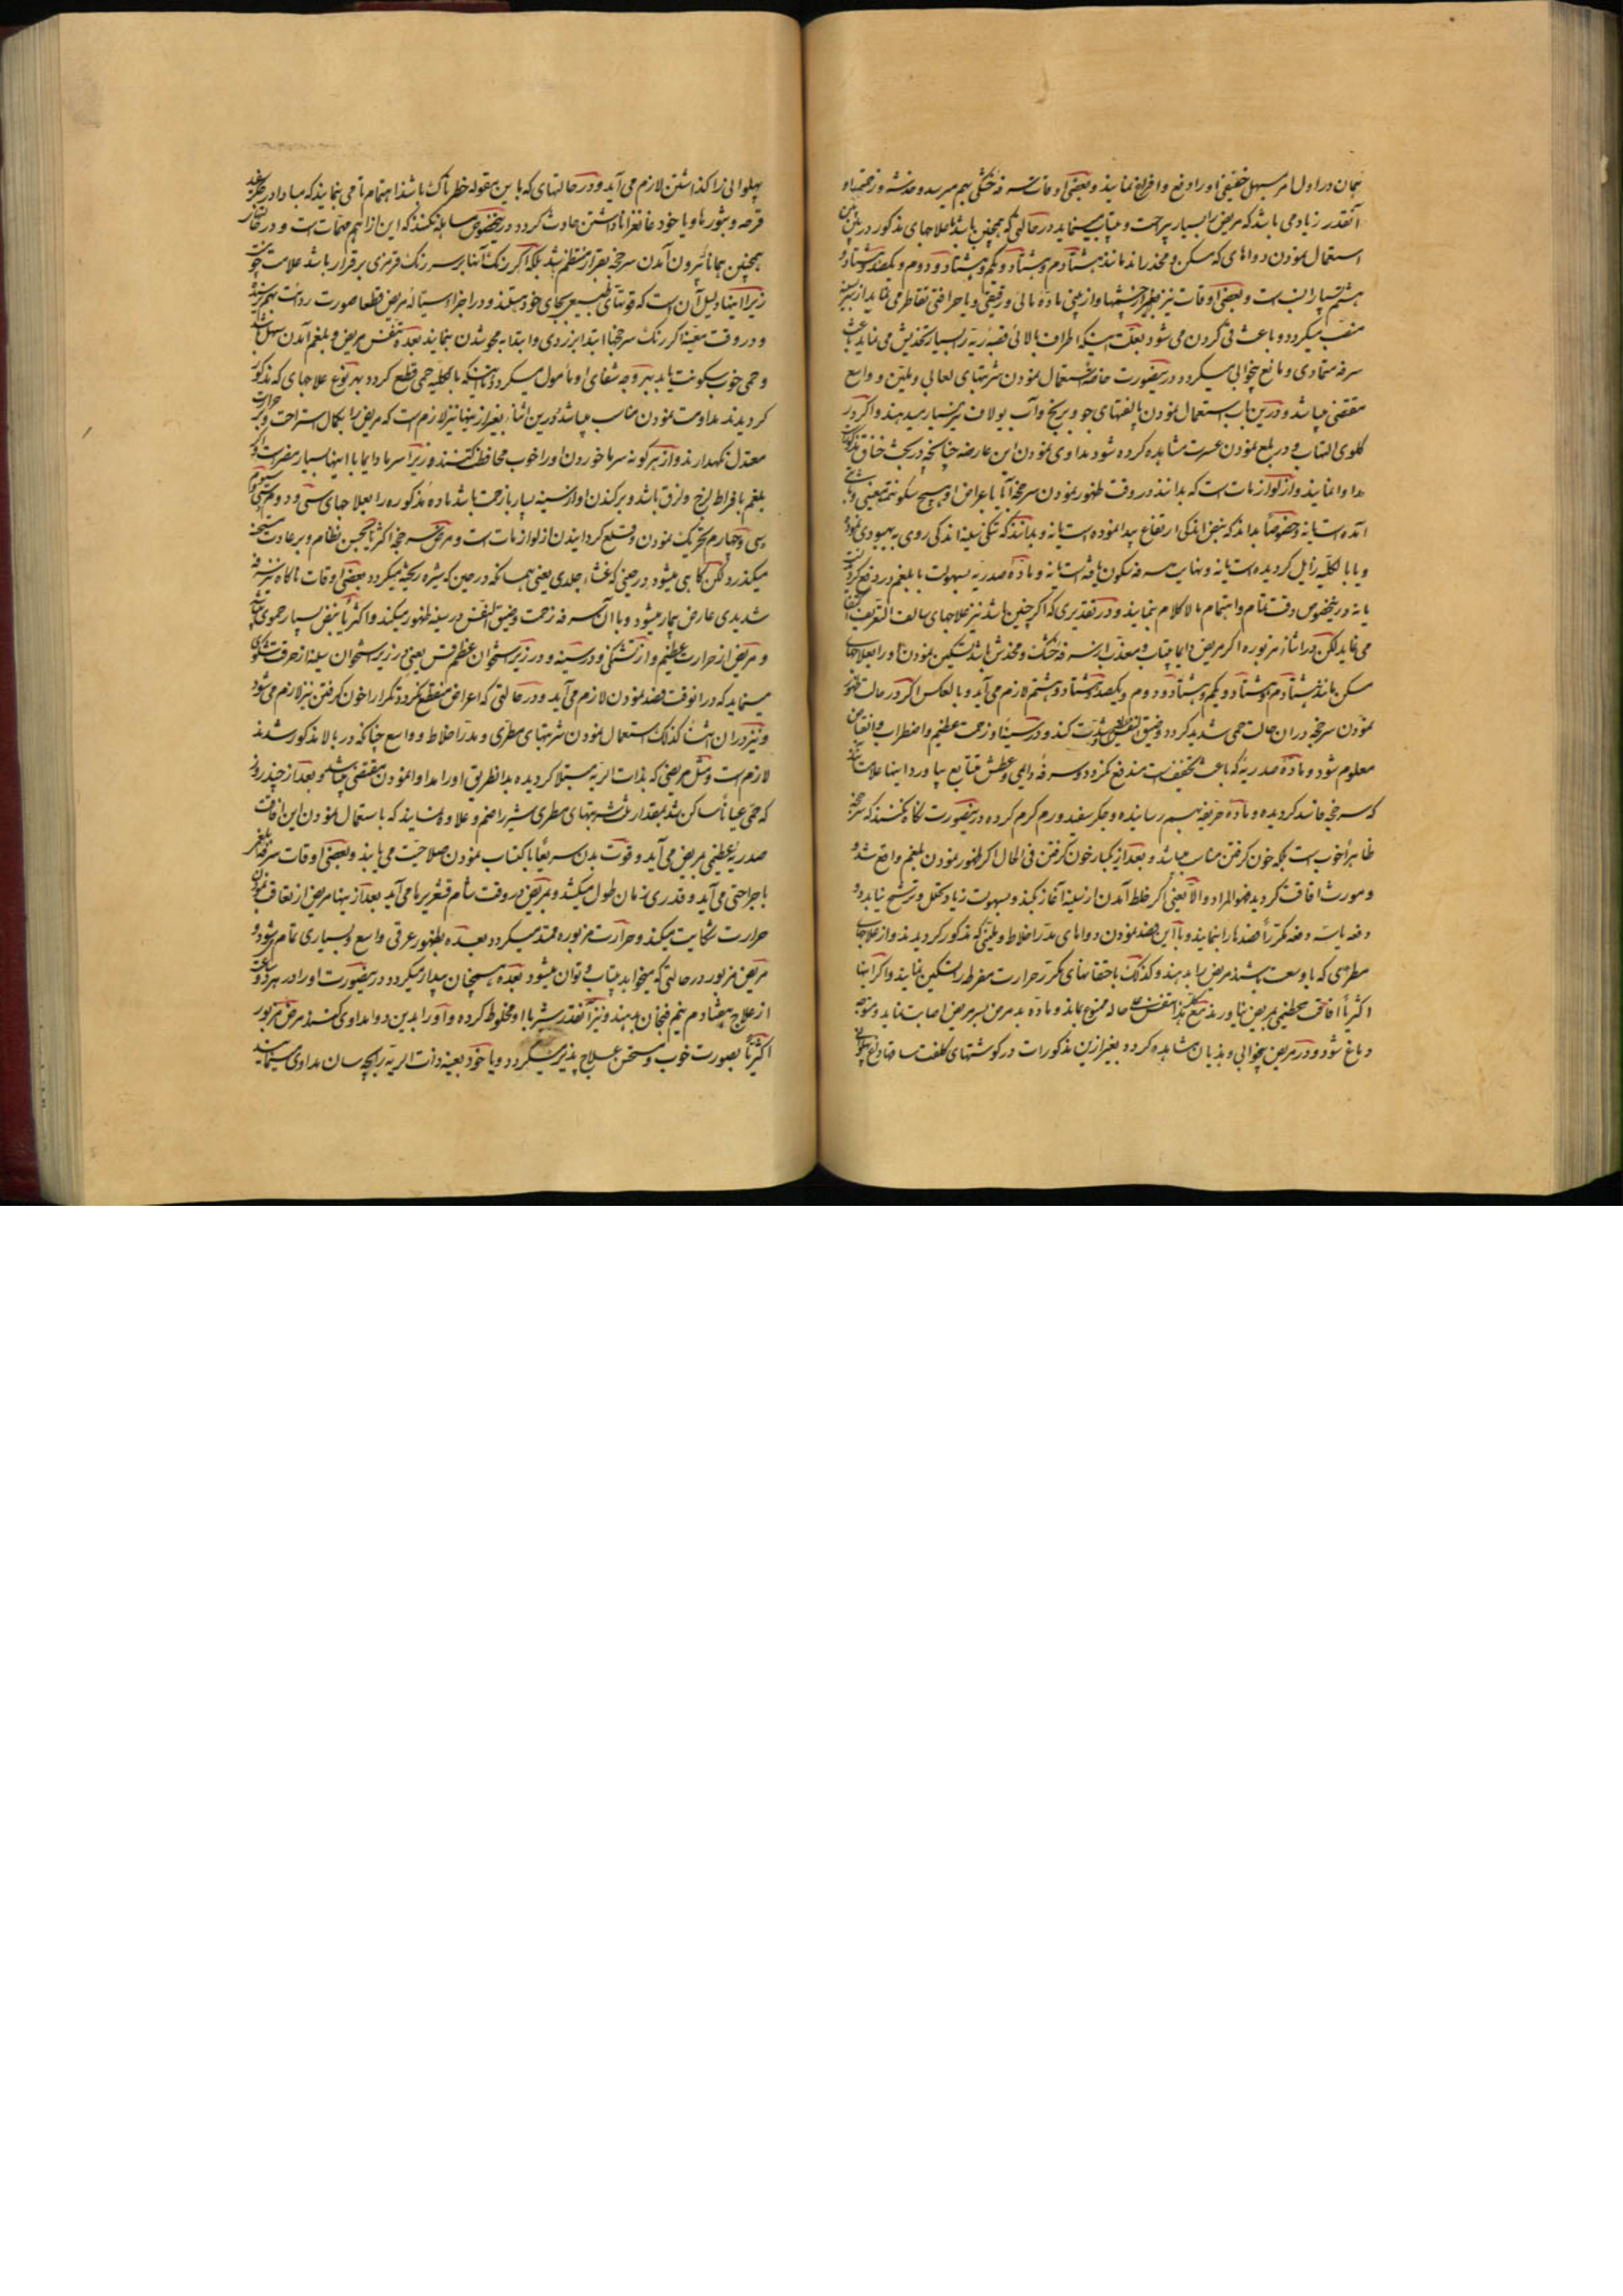 همان در اول امر بسهل خفیفی او را دفع و افراغ نمایند و بعضی اوقات سرفه خشکی بهم میرسد و خدشه و زحمتها او
آنقدر زیاد می باشد که مریض را بسیار بی راحت و بیتاب مینماید در حالتی که همچنین باشد بعلاجهای مذکور در
استعمال نمودن دواهای که مسکن و مخدراند مانند هشتادم و هشتاد و یکم و هشتاد و دوم و یکصد و هشتاد و
هشتم بسیار انسب است و بعضی اوقات نیز بطرف چشمها و از بینی ماده مائی و رقیقی و با حرافتی تقاطر می نماید از
منصب میگردد و باعث قی کردن می شود بعلت اینکه اطراف بالائی قصبه ریه را بسیار تخدیش می نماید
سرفه متمادی و مانع بیخوابی میگردد درینصورت خاصة استعمال نمودن شربتهای لعابی و ملین و واسع
مقتضی میباشد و درین باب استعمال نمودن بالغتهای جو و برنج و آب یولاف نیز بسیار میدهند و اگر در
گلوی التهاب و در بلع نمودن عسرت مشاهده کرده شود مداوی نمودن این عارضه چنانچه در بحث خناق
مداوا نمایند و از لوازمات است که بدانند در وقت ظهور نمودن سرخجه آیا با عراض او هیچ سکونتی یعنی
آمده است یا نه و خصوصا بدانند که نبض اندکی ارتفاع پیدا نموده است یا نه و بدانند که تنگی سینه اندکی روی به بهبودی
و یا بالکلیه زایل گردیده است یا نه و نهایت سرفه سکون یافته است یا نه و ماده صدریه بسهولت با بلغم در دفع
یا نه درینخصوص دقت تمام و اهتمام مالاکلام نمایند و در تقدیری که اگر چنین باشد نیز علاجهای سالف التعریف
می نماید لکن در اثنای مزبوره اگر مریض دایما بیتاب و معذب از سرفه خشک و مخدش باشد تسکین نمودن او را بعلاجهای
مسکن مانند هشتادم و هشتاد و یکم و هشتاد و دوم و یکصد و هشتاد و هشتم لازم می آید و بالعکس اگر در حالت
نمودن سرخجه در آن حالت حمی شدید گردد و ضیق النفس شدت کند و در سینه او زحمت عظیم و اضطراب و
معلوم شود و ماده صدریه که باعث تخفیف است مندفع نگردد و سرفه دایمی و عطش متتابع بیاورد اینها علامت
که سرخجه فاسد گردیده و ماده حریفه بهم رسانیده و جگر سفید ورم گرم کرده درینصورت نگاه نکنند که
ظاهرا خوب است بلکه خون گرفتن مناسب میباشد و بعد از یکبار خون گرفتن فی الحال اگر ظهور نمودن بلغم واقع شد
و مورث افاقت گردید فهو المراد و الا یعنی اگر خلط آمدن از سینه آغاز نکند و بسهولت زیاد تحلل و ترشح نیابد
دفعه یا سه دفعه مکررا فصدها را بنمایند و با این فصد نمودن دواهای مدر اخلاط و ملینی که مذکور گردیدند و از علاجهای
مطری که با وسعت باشند مریض را بدهند و کذلک با حقنهای مکرر حرارت مفرطه را تسکین نمایند و اگر اینها
اکثریا افاقت عظیمی بمریض نیاورند مع هذا تنفس علی حاله ممنوع بماند و ماده بد مرض بسر مریض اصابت نماید و متوجه
دماغ شود و در مریض بیخوابی و هذیان مشاهده گردد بغیر ازین مذکورات در گوشتهای کلفت ساقها
پهلوانی را گذاشتن لازم می آید و در حالتهای که باین مقوله خطرناک باشند اهتمام تام می نمایند که مبادا در
قرحه و بثورها و یا خود غانغرانا داشتن حادث گردد درینخصوص مساهله نکنند که این از اهم مهمات است و در
همچنین همانا بیرون آمدن سرخجه بقرار منتظم نشد بلکه اگر رنگ آنها بر سر رنگ قرمزی برقرار باشد علامت
زیرا اینها دلیل آن است که قوتهای طبیعی بجای خود هستند و در اجزای سیاله مریض قطعا صورت
و در وقت معینه اگر رنگ سرخجها ابتدا بزردی و ابتدا به محو شدن نمایند بعده تنفس مریض و بلغم آمدن سهل
و حمی خوب سکونت یابد بهر وجه شفای او مأمول میگردد تا اینکه بالکلیه حمی قطع گردد بهر نوع علاجهای که مذکور
گردیدند مداومت نمودن مناسب میباشد و درین اثنا بغیر از اینها نیز لازم است که مریض را بکمال استراحت و
معتدل نگهدارند و از هر گونه سرما خوردن او را خوب محافظت کنند زیرا سرما دایما با اینها بسیار مضر است
بلغم بافراط لزج و لزق باشد و برکندن او از سینه بسیار با زحمت باشد ماده مذکوره را بعلاجهای سی و دوم و سی و
سی و چهارم تحریک نمودن و قلع گردانیدن از لوازمات است و مرض سرخجه اکثریا بهمین نظام و بر عادت
میگذرد لکن گاهی میشود در حینی که غشاء جلدی یعنی همانا که در حین که بشره ریخته میگردد بعضی اوقات ناگاه
شدیدی عارض بیمار میشود و با آن سرفه زحمت و ضیق النفس در سینه ظهور میکند و اکثریا نبض بسیار حموی
و مریض از حرارت عظیم و از تشنگی و در سینه و در زیر استخوان عظم قس یعنی در زیر استخوان سینه از حرقت
مینماید که در آنوقت فصد نمودن لازم می آید و در حالتی که اعراض منقطع نگردد تکرار خون گرفتن نیز لازم می شود
و نیز در آن اثنا کذلک استعمال نمودن شربتهای مطری و مدر اخلاط و واسع چنانکه در بالا مذکور شدند
لازم است و مثل مریضی که بذات الریه مبتلا گردیده بدانطریق او را مداوا نمودن مقتضی میباشد و بعد از چند روز
که حمی عیانا ساکن شد بمقدار ثلث شربتهای مطری شیر را ضم و علاوه نمایند که باستعمال نمودن این افاقت
صدریه عظیمی بمریض می آید و قوت بدن سریعا باکتساب نمودن صلاحیت می یابد و بعضی اوقات
با جراحتی می آید و قدری زمان طول میکشد و بمریض در وقت شام قشعریره می آید بعد از اینها مریض از تعاقب
حرارت شکایت میکند و حرارت مزبوره ممتد میگردد بعده بظهور عرقی واسع و بسیاری تمام شود
مریض مزبور در حالتی که میخوابد بیتاب و توان میشود بعده همچنان بیدار میگردد درینصورت او را در هر
از علاج هفتادم نیم فنجان بدهند و نیز آنقدر شیر با او مخلوط کرده و او را بدین دوا مداوی کنند مرض مزبور
اکثریا بصورت خوب و مستحسن علاج پذیر میگردد و یا خود بعینه ذات الریه را بچه سان مداوی مینمایند